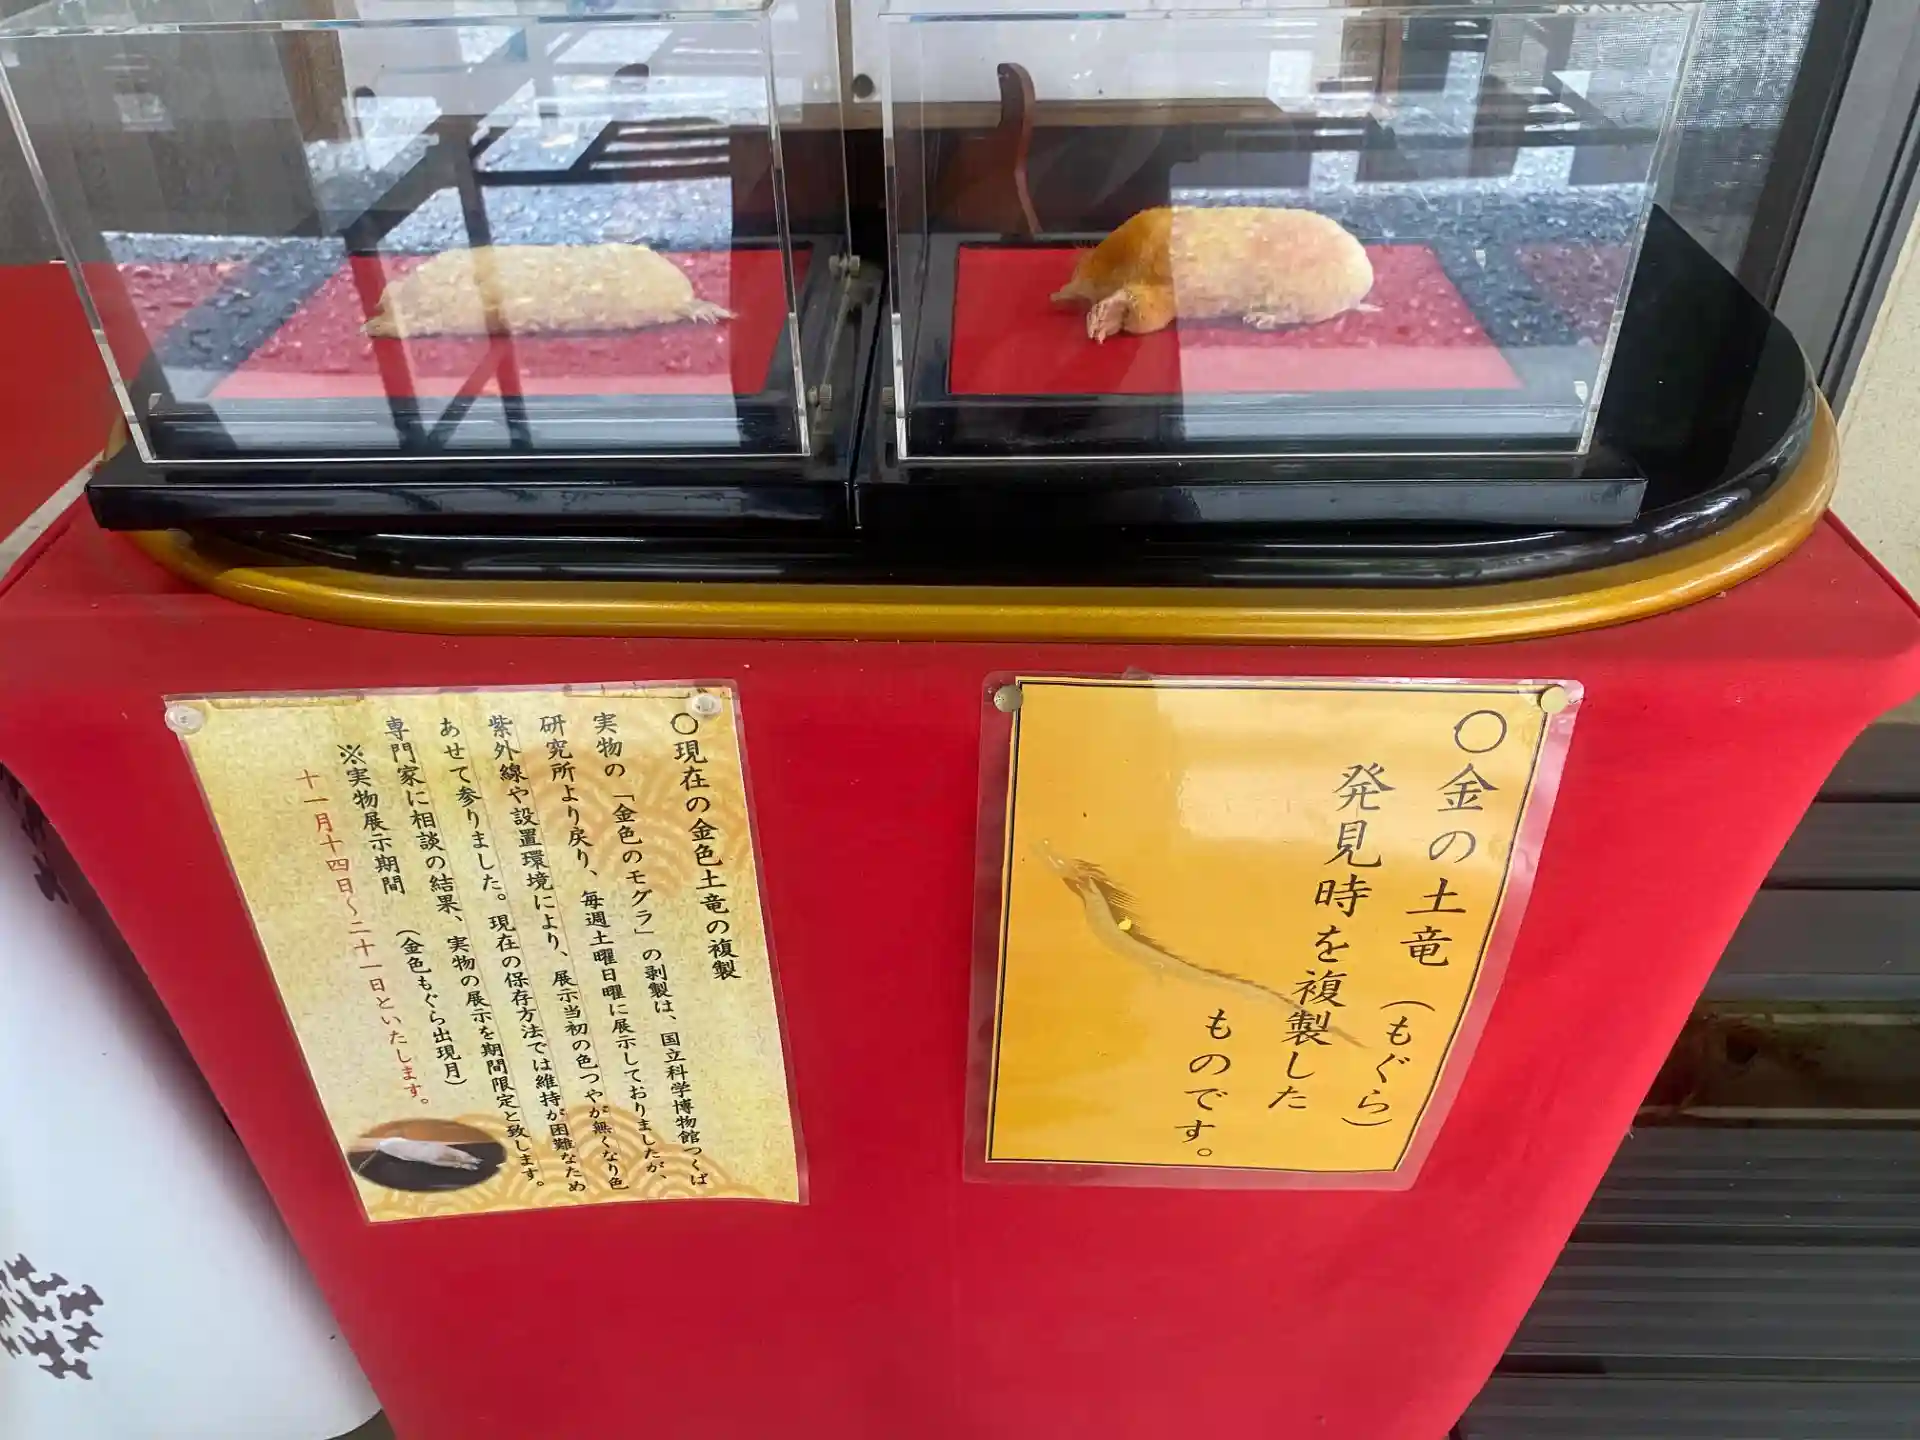 〇現在の金色土竜の複製
実物の「金色のモグラ」の剥製は、国立科学博物館つくば
研究所より戻り、毎週土曜日曜に展示しておりましたが、
紫外線や設置環境により、展示当初の色つやが無くなり色
あせて参りました。現在の保存方法では維持が困難なため
専門家に相談の結果、実物の展示を期間限定と致します。
※実物展示期間 (金色もぐら出現月)
十一月十四日~二十一日といたします。
〇金の土竜(もぐら)
発見時を複製した
ものです。